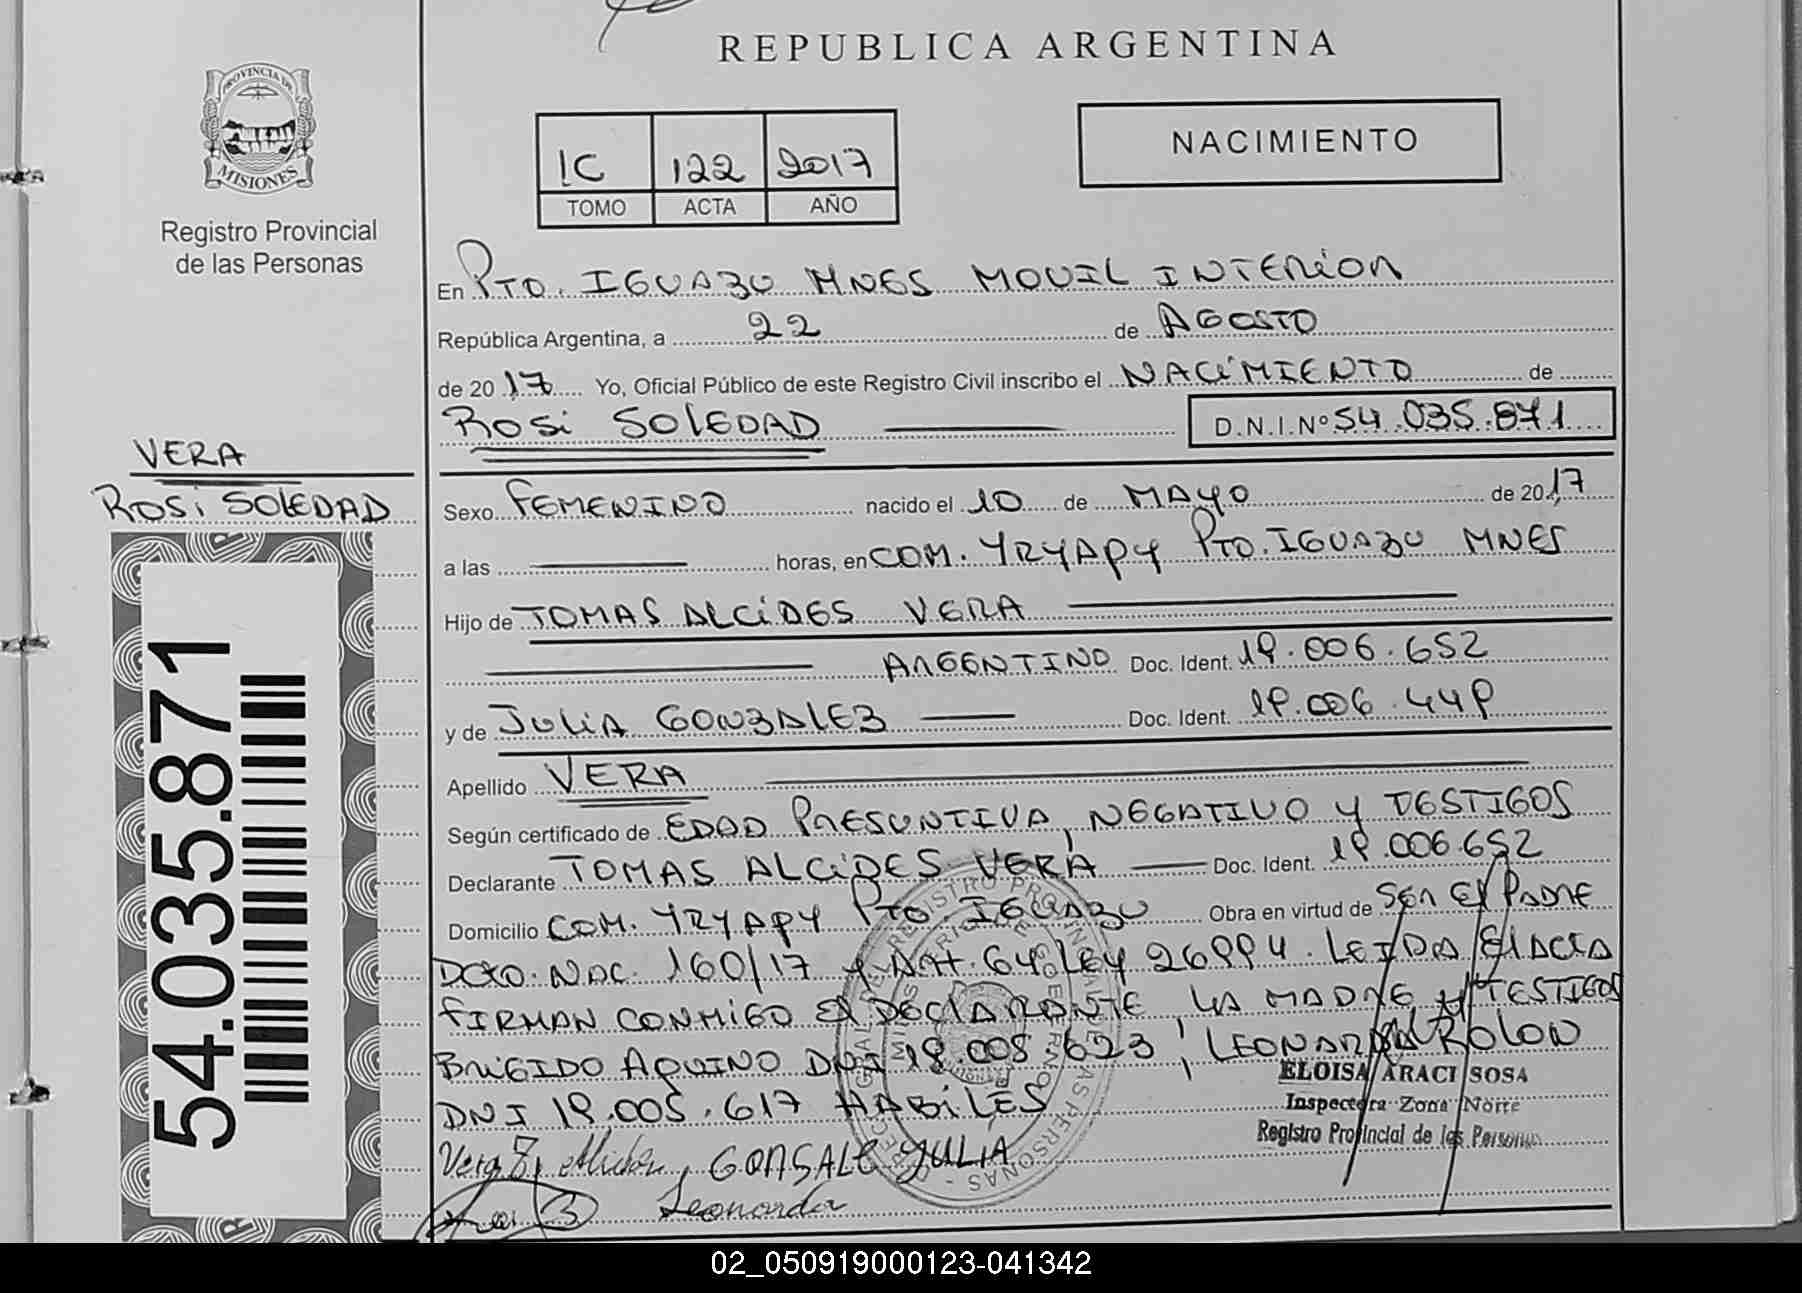 REPUBLICA ARGENTINA
PROVINCIA DE
MISIONES
Registro Provincial
de las Personas
1C 122 2017
TOMO ACTA AÑO
NACIMIENTO
En PTO. IGUAZU MNES MOVIL INTERIOR
República Argentina, a 22 de AGOSTO
de 2017 Yo, Oficial Público de este Registro Civil inscribo el NACIMIENTO de
ROSI SOLEDAD D.N.I.Nº 54.035.871
VERA
ROSI SOLEDAD
54.035.871
Sexo FEMENINO nacido el 10 de MAYO de 2017
a las horas, en COM. YRYAPY PTO. IGUAZU MNES
Hijo de TOMAS ALCIDES VERA
ARGENTINO Doc. Ident. 19.006.652
y de JULIA GONZALEZ Doc. Ident. 19.006.449
Apellido VERA
Según certificado de EDAD PRESUNTIVA, NEGATIVO Y TESTIGOS
Declarante TOMAS ALCIDES VERA Doc. Ident. 19.006.652
Domicilio COM. YRYAPY PTO. IGUAZU Obra en virtud de SER EL PADRE
DCTO. NAC. 160/17 Y ART. 64 LEY 26994. LEIDA EL ACTA
FIRMAN CONMIGO EL DECLARANTE, LA MADRE Y TESTIGOS
BRIGIDO AQUINO DNI 18.008.623, LEONARDA ROLON
DNI 19.005.617 HABILES
ELOISA ARACI SOSA
Inspectora Zona Norte
Registro Provincial de las Personas
GONSALE JULIA
Leonarda
02_050919000123-041342